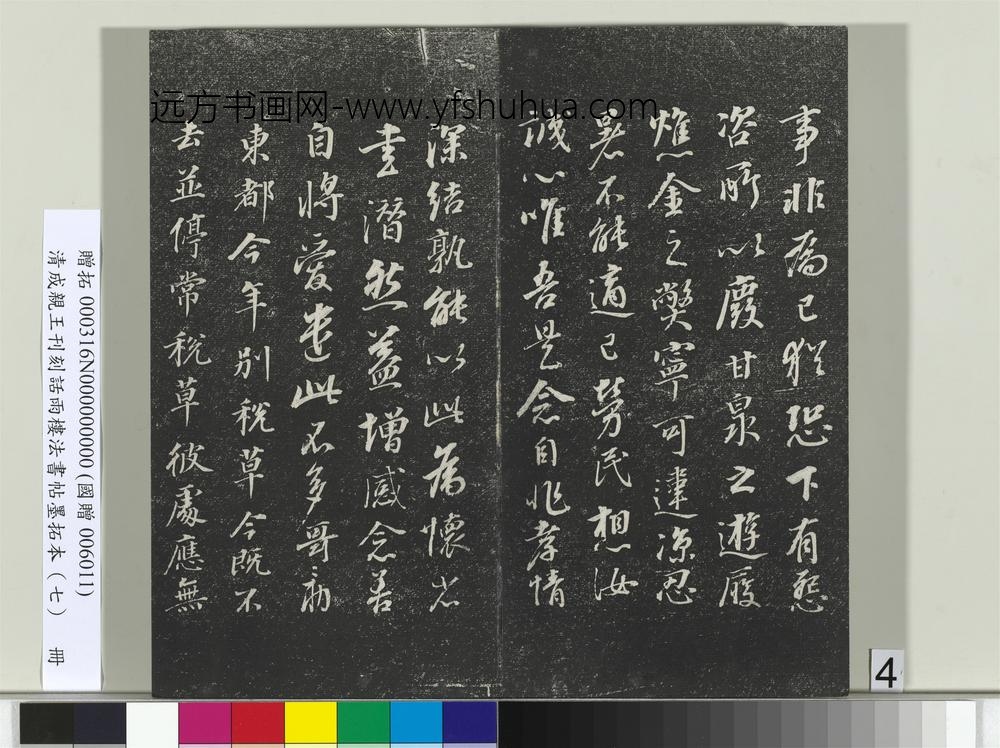 远方书画网-www.yfshuhua.com
事非為己猶恐下有怨
咨所以廢甘泉之遊履
燋金之獘寧可違涼忍
暑不能適己勞民想汝
誠心唯吾是念自非孝情
深結孰能以此為懷省
書潸然益增感念善
自將愛遣此不多哥勑
東都今年別稅草今既不
去並停常稅草彼處應無
贈拓 000316N000000000 (國贈 006011)
清成親王刊刻話雨樓法書帖墨拓本（七） 冊
4